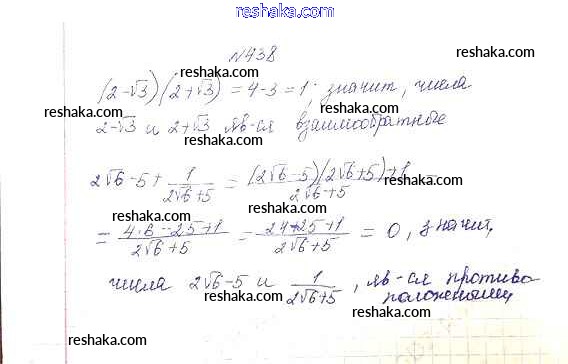 reshaka.com
№438
reshaka.com reshaka.com
(2-√3)(2+√3) = 4-3 = 1 значит, числа
reshaka.com reshaka.com
2-√3 и 2+√3 яв-ся взаимообратные
reshaka.com reshaka.com
2√6-5 + 1/(2√6+5) = ((2√6-5)(2√6+5)+1)/(2√6+5) =
reshaka.com reshaka.com
= (4·6-25+1)/(2√6+5) = (24-25+1)/(2√6+5) = 0, значит,
reshaka.com reshaka.com
числа 2√6-5 и 1/(2√6+5), яв-ся противо
положеными
reshaka.com reshaka.com
reshaka.com
reshaka.com